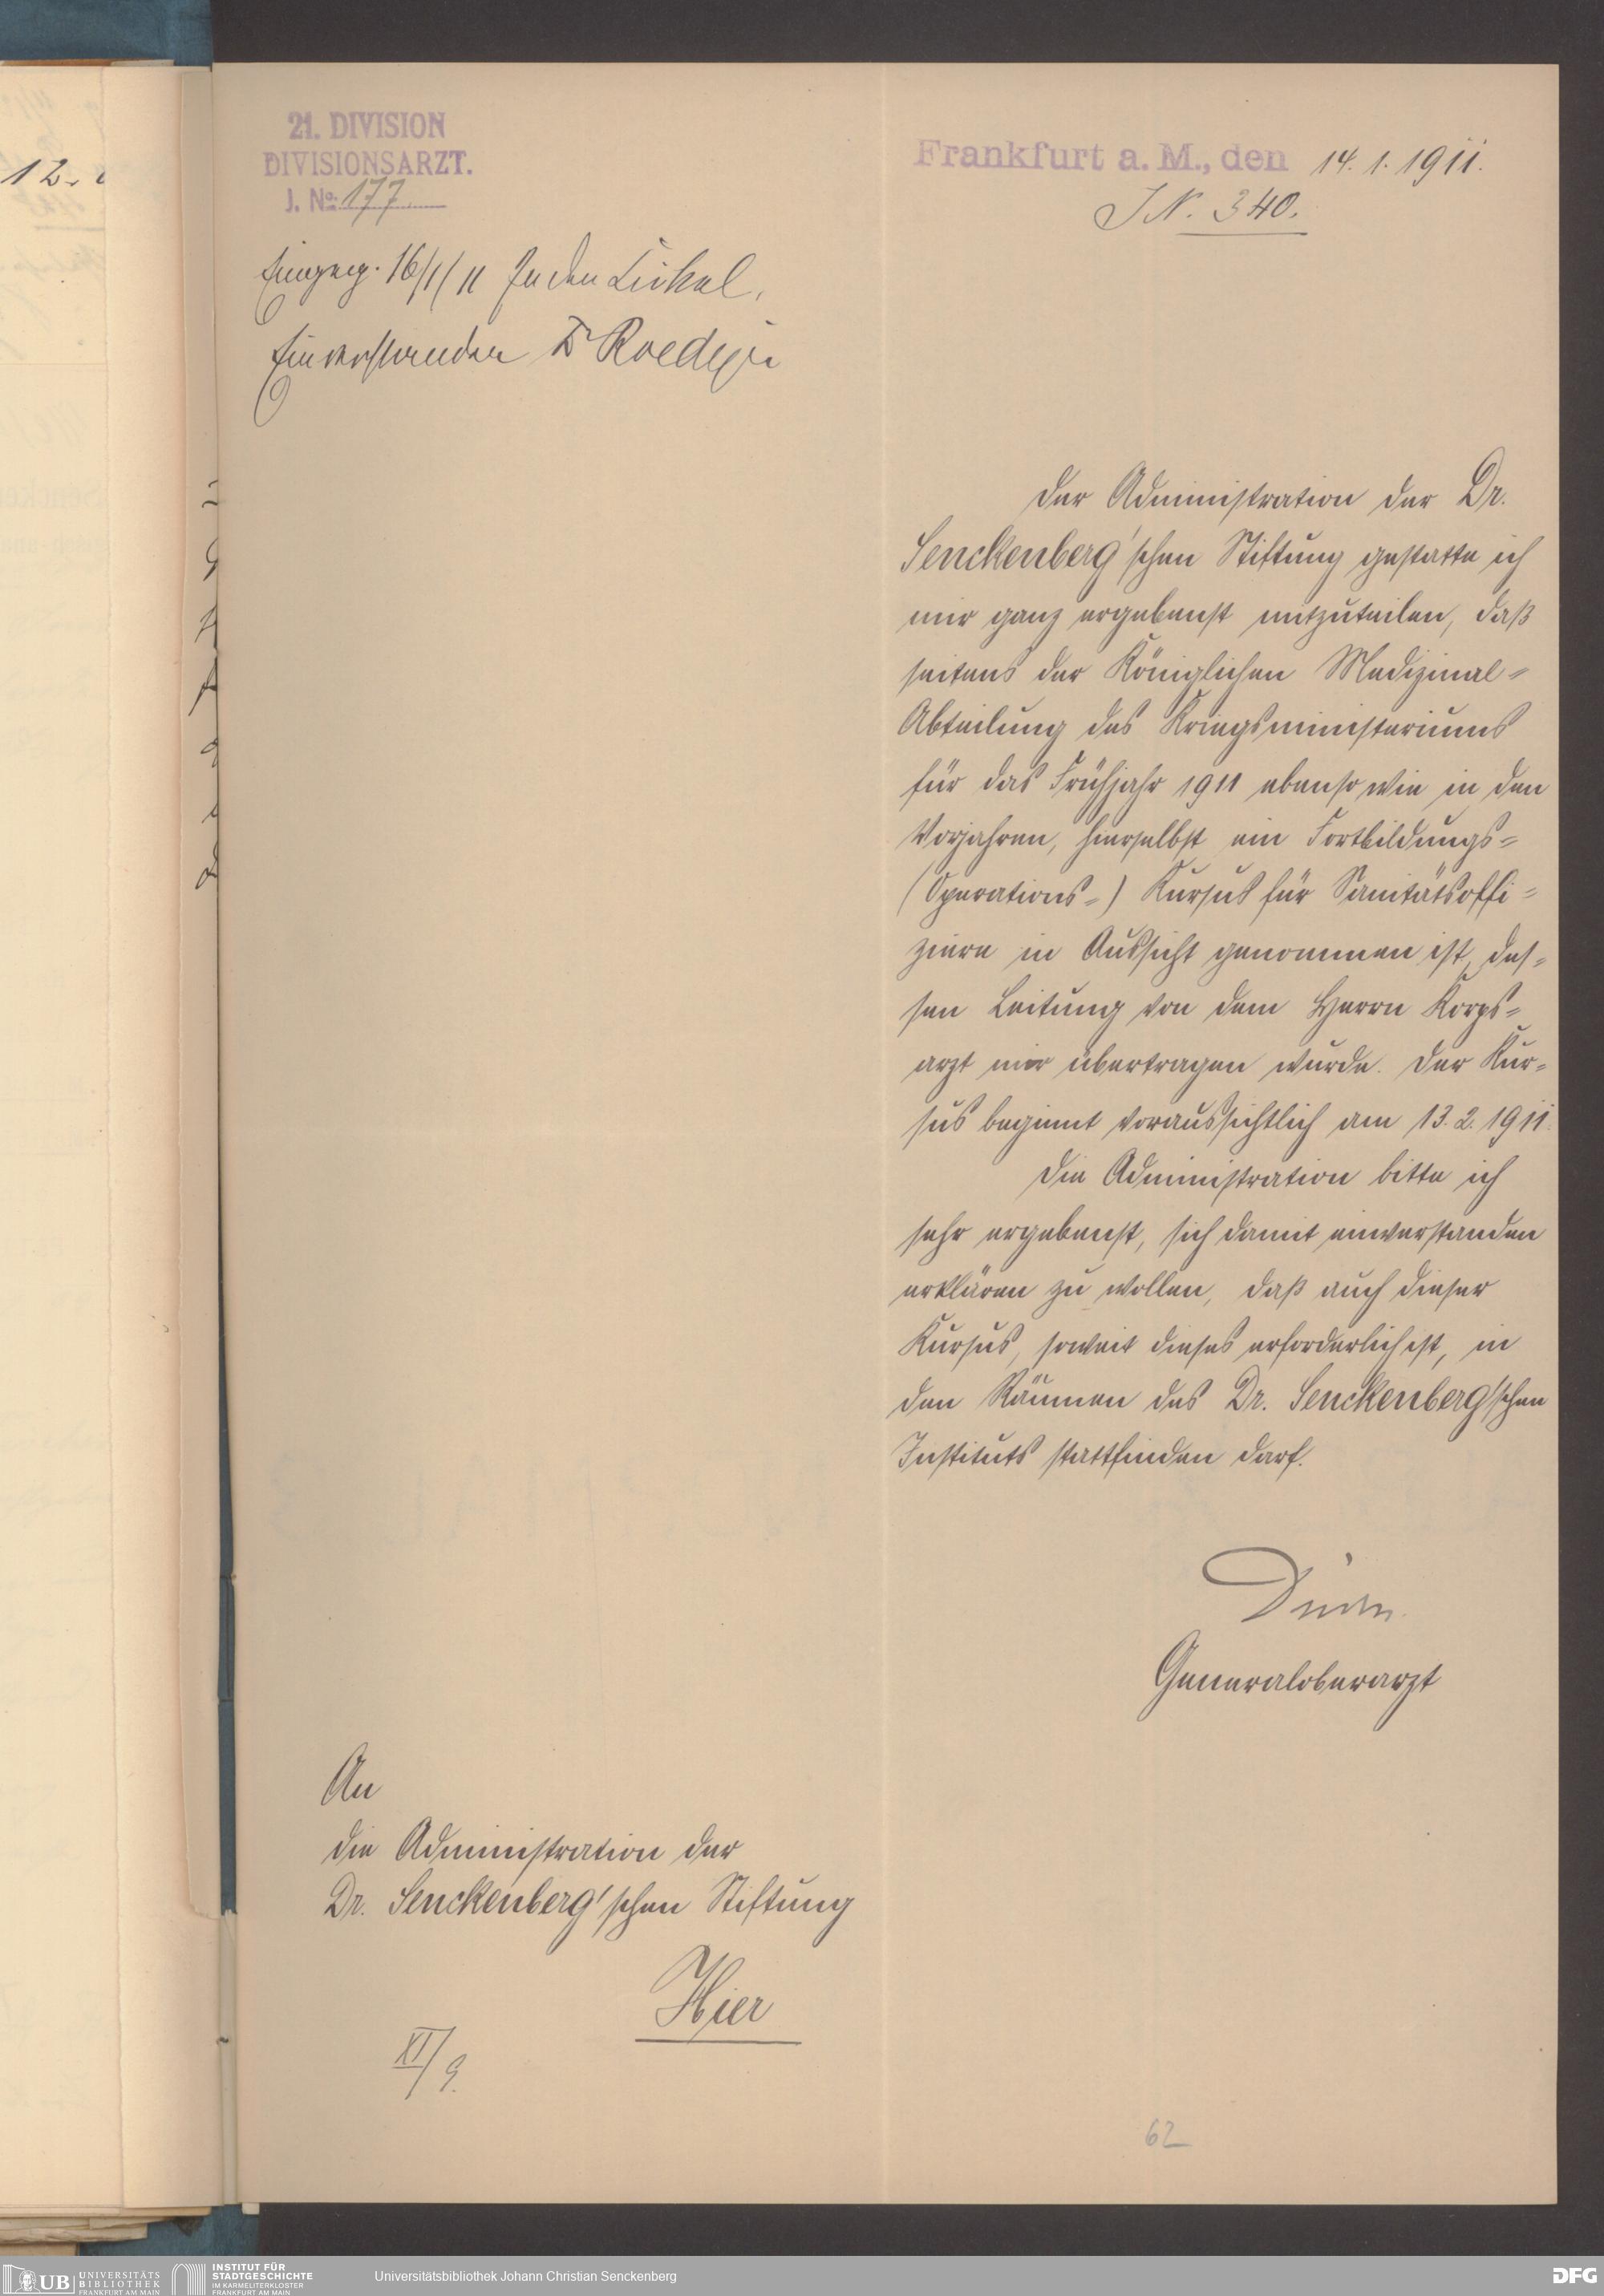 21. DIVISION
DIVISIONSARZT.
J. No. 177
Eingeg. 16/1/11 In den Zirkel,
Einverstanden Dr Roediger
Frankfurt a. M., den 14. 1. 1911.
JN. 340.
Der Administration der Dr.
Senckenberg'schen Stiftung gestatte ich
mir ganz ergebenst mitzuteilen, daß
seitens der Königlichen Medizinal-
Abteilung des Kriegsministeriums
für das Frühjahr 1911 ebenso wie in den
Vorjahren, hierselbst ein Fortbildungs-
(Operations-) Kursus für Sanitätsoffi-
ziere in Aussicht genommen ist, des-
sen Leitung von dem Herrn Korps-
arzt mir übertragen wurde. Der Kur-
sus beginnt voraussichtlich am 13. 2. 1911.
Die Administration bitte ich
sehr ergebenst, sich damit einverstanden
erklären zu wollen, daß auch dieser
Kursus, soweit dieses erforderlich ist, in
den Räumen des Dr. Senckenberg'schen
Instituts stattfinden darf.
Generaloberarzt
An
die Administration der
Dr. Senckenberg'schen Stiftung
Hier
XI/9.
62
UB UNIVERSITÄTS
BIBLIOTHEK
FRANKFURT AM MAIN
INSTITUT FÜR
STADTGESCHICHTE
IM KARMELITERKLOSTER
FRANKFURT AM MAIN
Universitätsbibliothek Johann Christian Senckenberg
DFG